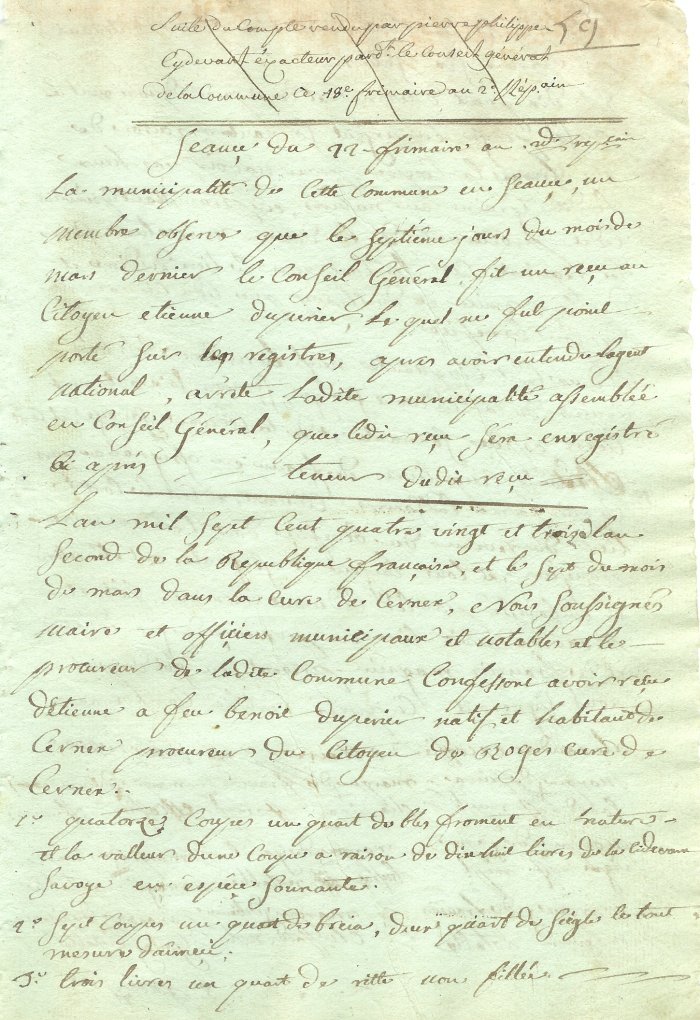 Suite du Compte rendu par pierre philippe 59
Cydevant éxacteur pard.t le Conseil général
de la Commune ce 18e frimaire an 2e Rép.ain
Seance du 22 frimaire an 2d. repcain
La municipalité de Cette Commune en Seance, un
membre observe que le Septiéme jours du mois de
mars dernier le Conseil Général fit un reçu au
Citoyen etienne duperier, Le quel ne fut point
porté Sur les registres, apres avoir entendu lagent
national, arrète Ladite municipalité assemblée
en Conseil Général, que ledit reçu Séra enregistré
Ci après teneur dudit reçu
Lan mil Sept Cent quatre vingt et troise lan
Second de la Republique française, et le Sept du mois
de mars dans la Cure de Cernex, Nous Soussignés
maire et officiers municipaux et notables et le
procureur de ladite Commune Confessont avoir reçu
détienne a feu benoit duperier natif et habitant de
Cernex procureur du Citoyen de Roges Curé de
Cernex.
1.o quatorze Coupes un quart de bles froment en nature
et la valleur dune Coupe a raison de dix huit livres de la Cidevant
Savoye en éspéce Sonnante.
2.o Sept Coupes un quart de breia, deux quart de Siègle le tout
mesure
3.o trois livres un quart de ritte non fillée